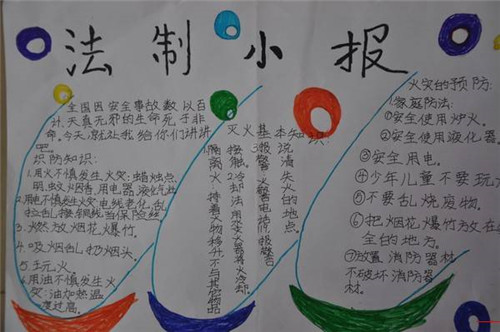 法制小报
全国因安全事故数以百
计天真无邪的生命死于非
命。今天,就让我给你们讲讲
吧
识防知识:
1.用火不慎发生火灾:蜡烛点
明,蚊火烟香,用电器,液化气灶
2.用电不慎发生火灾,电线老化,乱
拉乱接,铜线当保险丝
3.燃放烟花爆竹。
4.吸烟乱扔烟头。
5.玩火。
6.用油不慎发生火
灾:油加热温
度过高。
灭火基本知识:
着火物移开不与其它物品
接触2冷却法用
火冷却
说清失火的地点
火灾的预防:
1.家庭防法:
①安全使用炉火。
②安全使用液化器。
③安全用电。
④少年儿童不要玩
⑤不要乱烧废物。
⑥把烟花爆竹放在
全的地方。
⑦放置消防器材.
不破坏消防器
材.